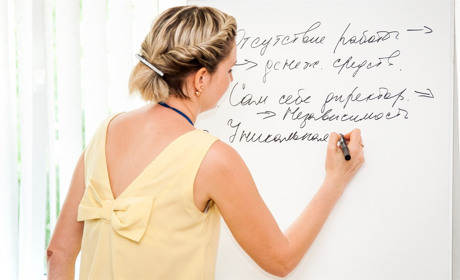 Отсутствие работы →
→ денеж. средств.
Сам себе директор. =
→ Независимость
Уникальной